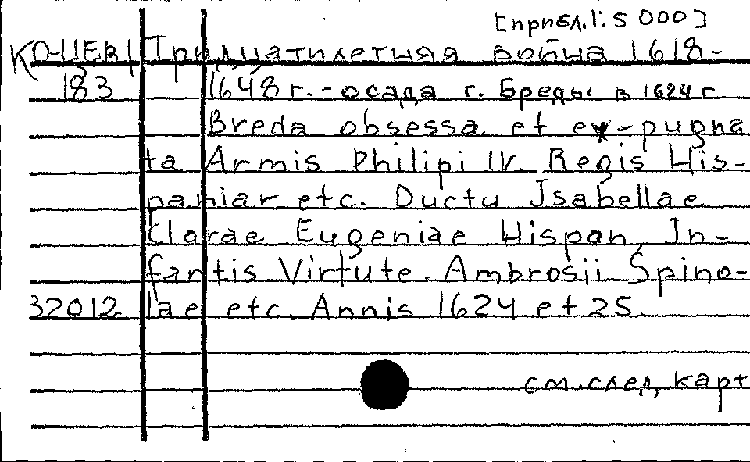 [прибл. 1:5 000]
Тридцатилетняя война 1618-
183 1648 г. - осада г. Бреды в 1624 г
Breda obsessa et ex-pugna
ta Armis Philipi IV Regis His-
paniar etc. Ductu Isabellae
Clarae Eugeniae Hispan, In-
fantis Virtute. Ambrosii Spino-
32012 lae etc. Annis 1624 et 25.
см. след, карт